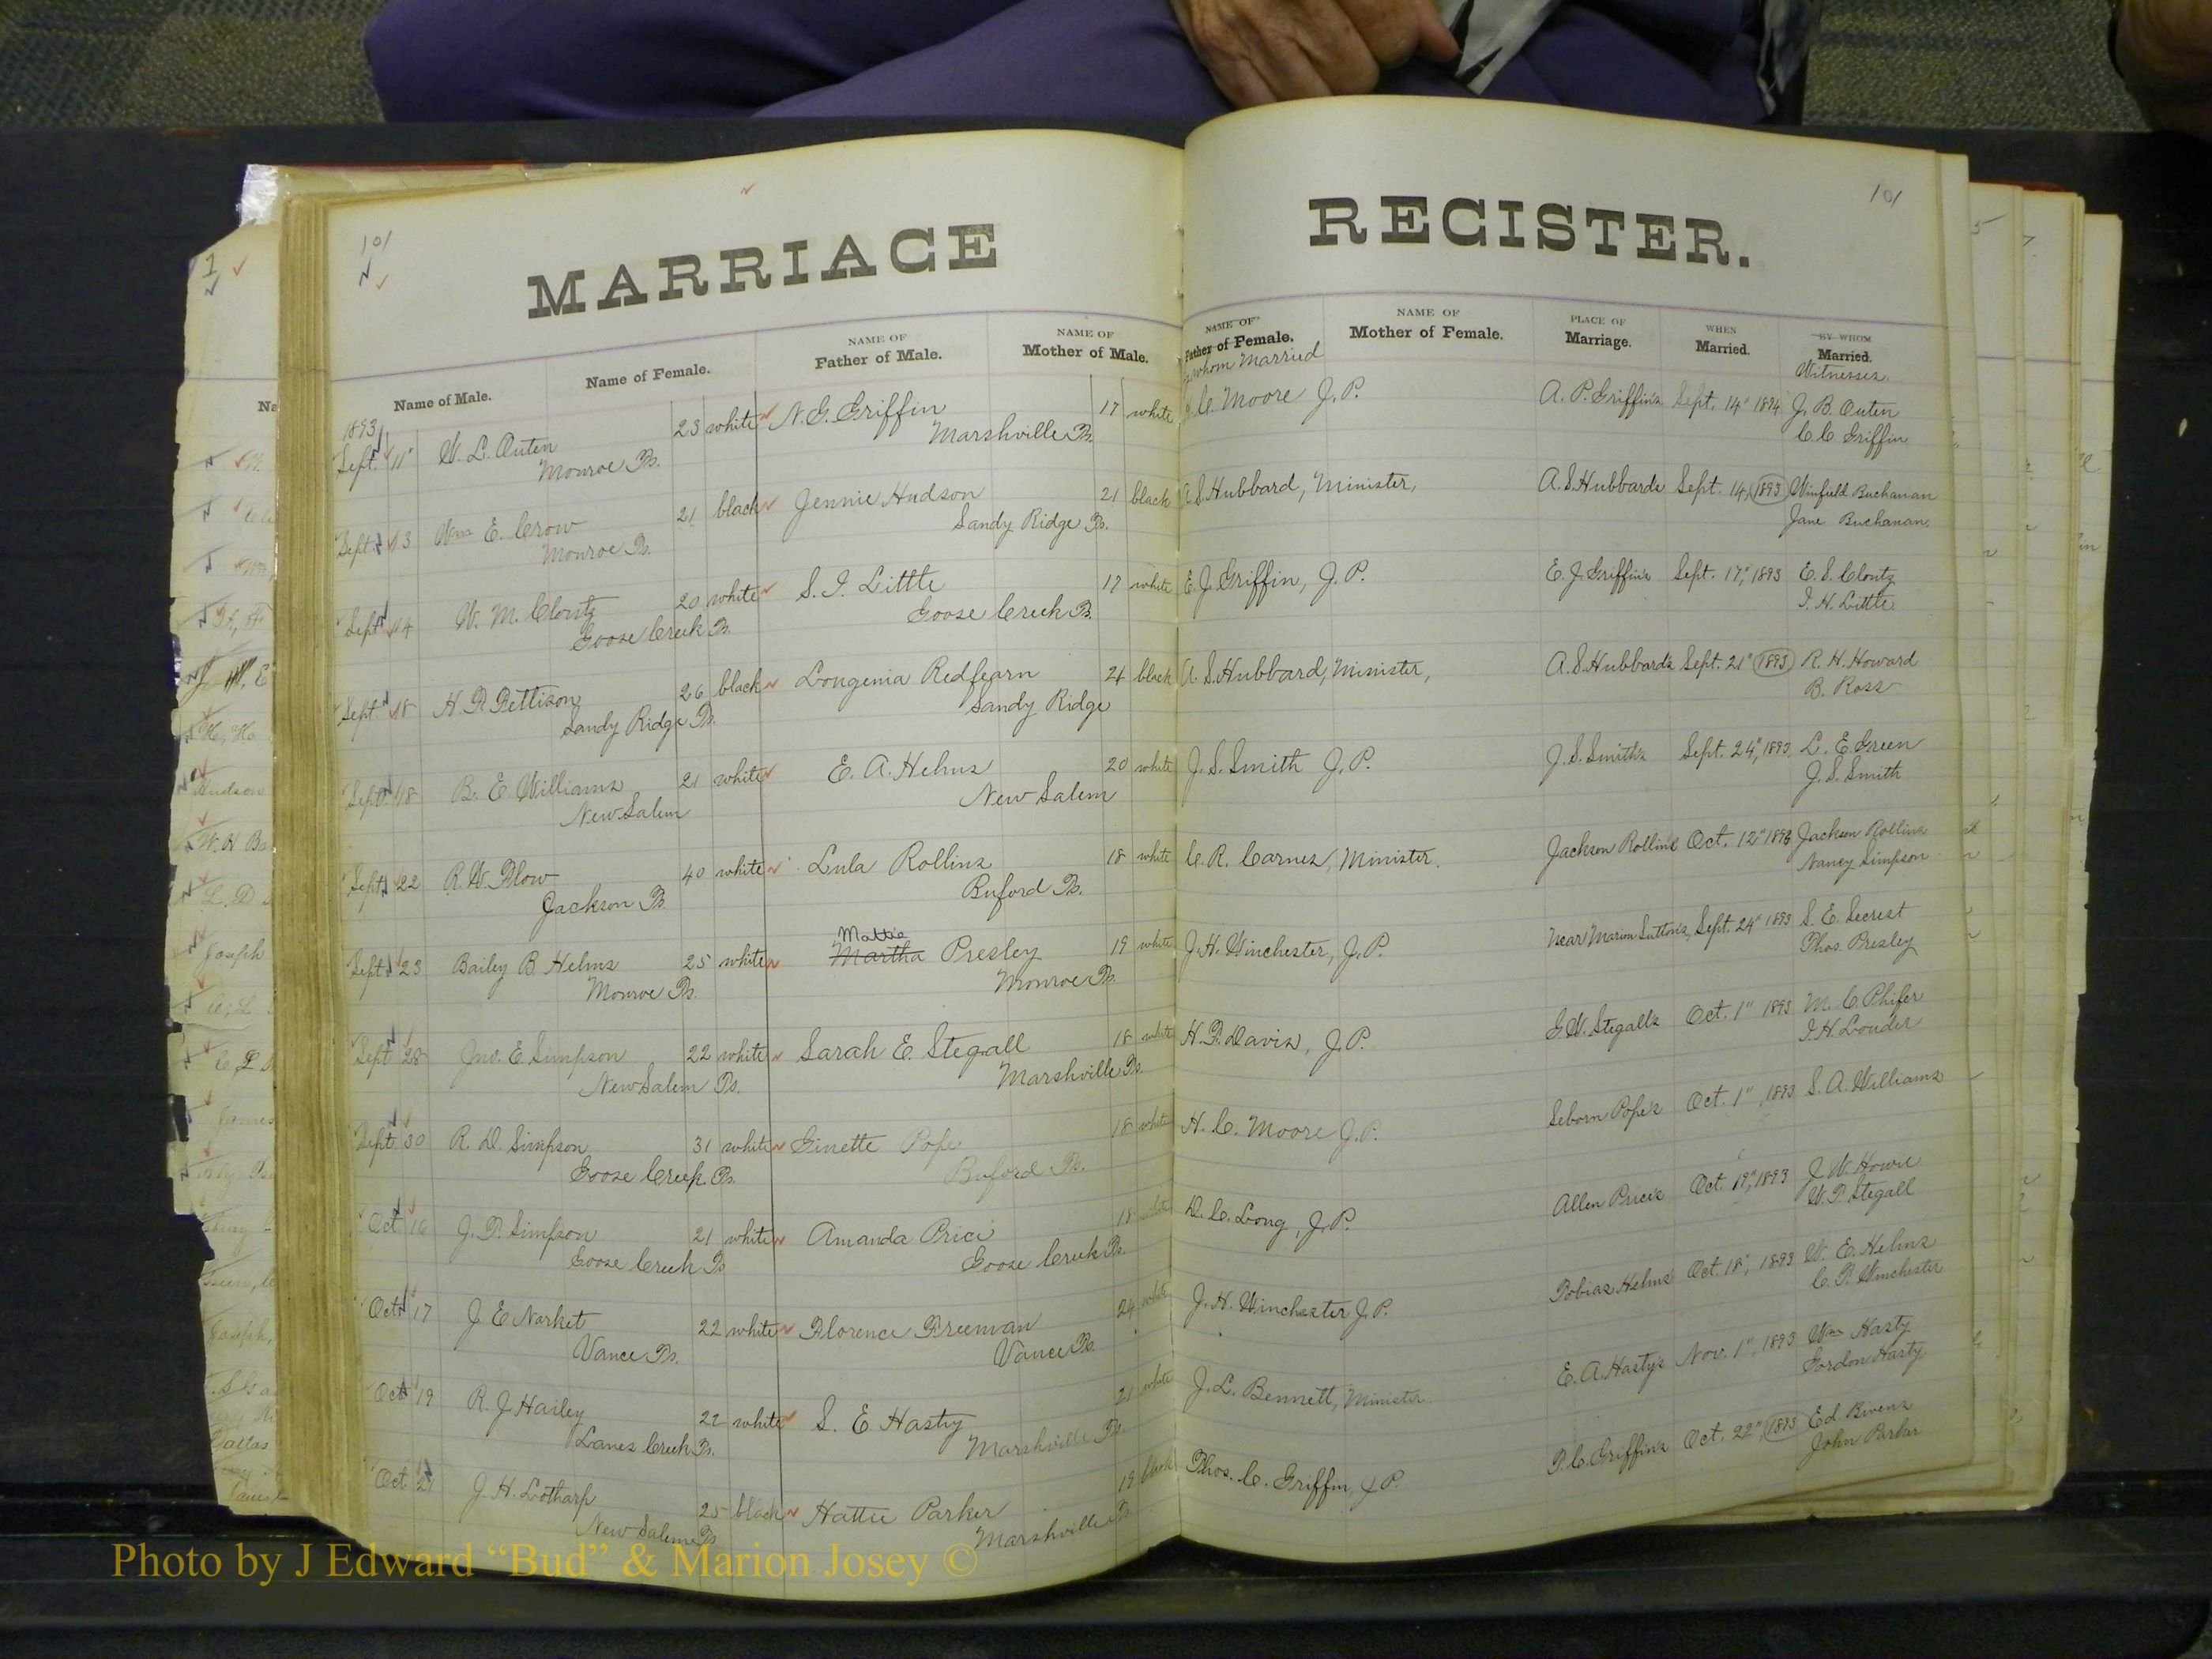 101
101
MARRIAGE REGISTER.
Name of Male.
Name of Female.
NAME OF
Father of Male.
NAME OF
Mother of Male.
NAME OF
Father of Female.
whom Married
NAME OF
Mother of Female.
PLACE OF
Marriage.
WHEN
Married.
BY WHOM
Married.
Witnesses.
1893
Sept. 11" W. L. Outen 23 white N. G. Griffin 17 white H. C. Moore J. P. A. P. Griffin's Sept. 14" 1894 J. B. Outen
Monroe Ts. Marshville Ts. C. C. Griffin
Sept. 13 Wm E. Crow 21 black Jennie Hudson 21 black A. S. Hubbard, Minister, A. S. Hubbards Sept. 14, 1893 Winfield Buchanan
Monroe Ts. Sandy Ridge Ts. Jane Buchanan.
Sept. 14 W. M. Clontz 20 white S. I. Little 17 white E. J. Griffin, J. P. E. J. Griffin's Sept. 17", 1893 E. S. Clontz
Goose Creek Ts. Goose Creek Ts. I. H. Little
Sept. 18 H. P. Pettison 26 black Longenia Redfearn 21 black A. S. Hubbard, Minister, A. S. Hubbard's Sept. 21" 1893 R. H. Howard
Sandy Ridge Ts. Sandy Ridge B. Ross
Sept. 18 B. E. Williams 21 white E. A. Helms 20 white J. S. Smith J. P. J. S. Smith's Sept. 24", 1893 L. E. Green
New Salem New Salem J. S. Smith
Sept. 22 R. W. Plow 40 white Lula Rollins 18 white C. R. Carnes, Minister. Jackson Rollins Oct. 12" 1893 Jackson Rollins
Jackson Ts. Buford Ts. Nancy Simpson
Mattie
Sept. 23 Bailey B. Helms 25 white Martha Presley 19 white J. H. Winchester, J. P. Near Marion Sutton's, Sept. 24" 1893 S. E. Secrest
Monroe Ts. Monroe Ts. Thos. Presley
Sept 28 Jno. E. Simpson 22 white Sarah E. Stegall 18 white H. P. Davis, J. P. G. W. Stegall's Oct. 1" 1893 M. C. Phifer
New Salem Ts. Marshville Ts. I. H. Louder
Sept. 30 R. D. Simpson 31 white Ginette Pope 18 white H. C. Moore J. P. Seborn Pope's Oct. 1" 1893 S. A. Williams
Goose Creek Ts. Buford Ts.
Oct 16 J. P. Simpson 21 white Amanda Price 18 white D. C. Long, J. P. Allen Price's Oct. 19", 1893 J. W. Howie
Goose Creek Ts. Goose Creek Ts. W. P. Stegall
Oct. 17 J. E. Narket 22 white Florence Freeman 24 white J. H. Winchester J. P. Tobias Helms' Oct. 18", 1893 W. E. Helms
Vance Ts. Vance Ts. C. P. Winchester
Oct 19 R. J. Hailey 22 white S. E. Hasty 21 white J. L. Bennett, Minister E. A. Hasty's Nov. 1", 1893 Wm Hasty
Lanes Creek Ts. Marshville Ts. Gordon Hasty
Oct 21 J. H. Lotharp 25 black Hattie Parker 19 black Thos. C. Griffin, J. P. T. C. Griffin's Oct. 22" 1893 Ed. Bivens
New Salem Ts. Marshville Ts. John Parker
Photo by J Edward “Bud” & Marion Josey ©